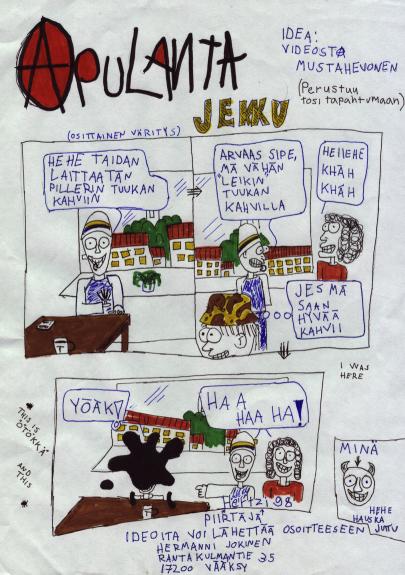 APULANTA
JEKKU
IDEA:
VIDEOSTA
MUSTAHEVONEN
(Perustuu
tosi tapahtumaan)
(OSITTAINEN VÄRITYS)
HEHE TAIDAN
LAITTAATÄN
PILLERIN TUUKAN
KAHVIIN
ARVAAS SIPE,
MÄ VÄHÄN
LEIKIN
TUUKAN
KAHVILLA
HEHEHE
KHÄH
KHÄH
JES MÄ
SAAN
HYVÄÄ
KAHVII
T
I WAS
HERE
THIS IS
ÖTÖKKÄ
AND
THIS
YÖÄK!
HA A
HAA HA!
T
MINÄ
HEHE
HAUSKA
JUTU
Hertzi 98
PIIRTÄJÄ
IDEOITA VOI LÄHETTÄÄ OSOITTEESEEN
HERMANNI JOKINEN
RANTAKULMANTIE 35
17200 VÄÄKSY